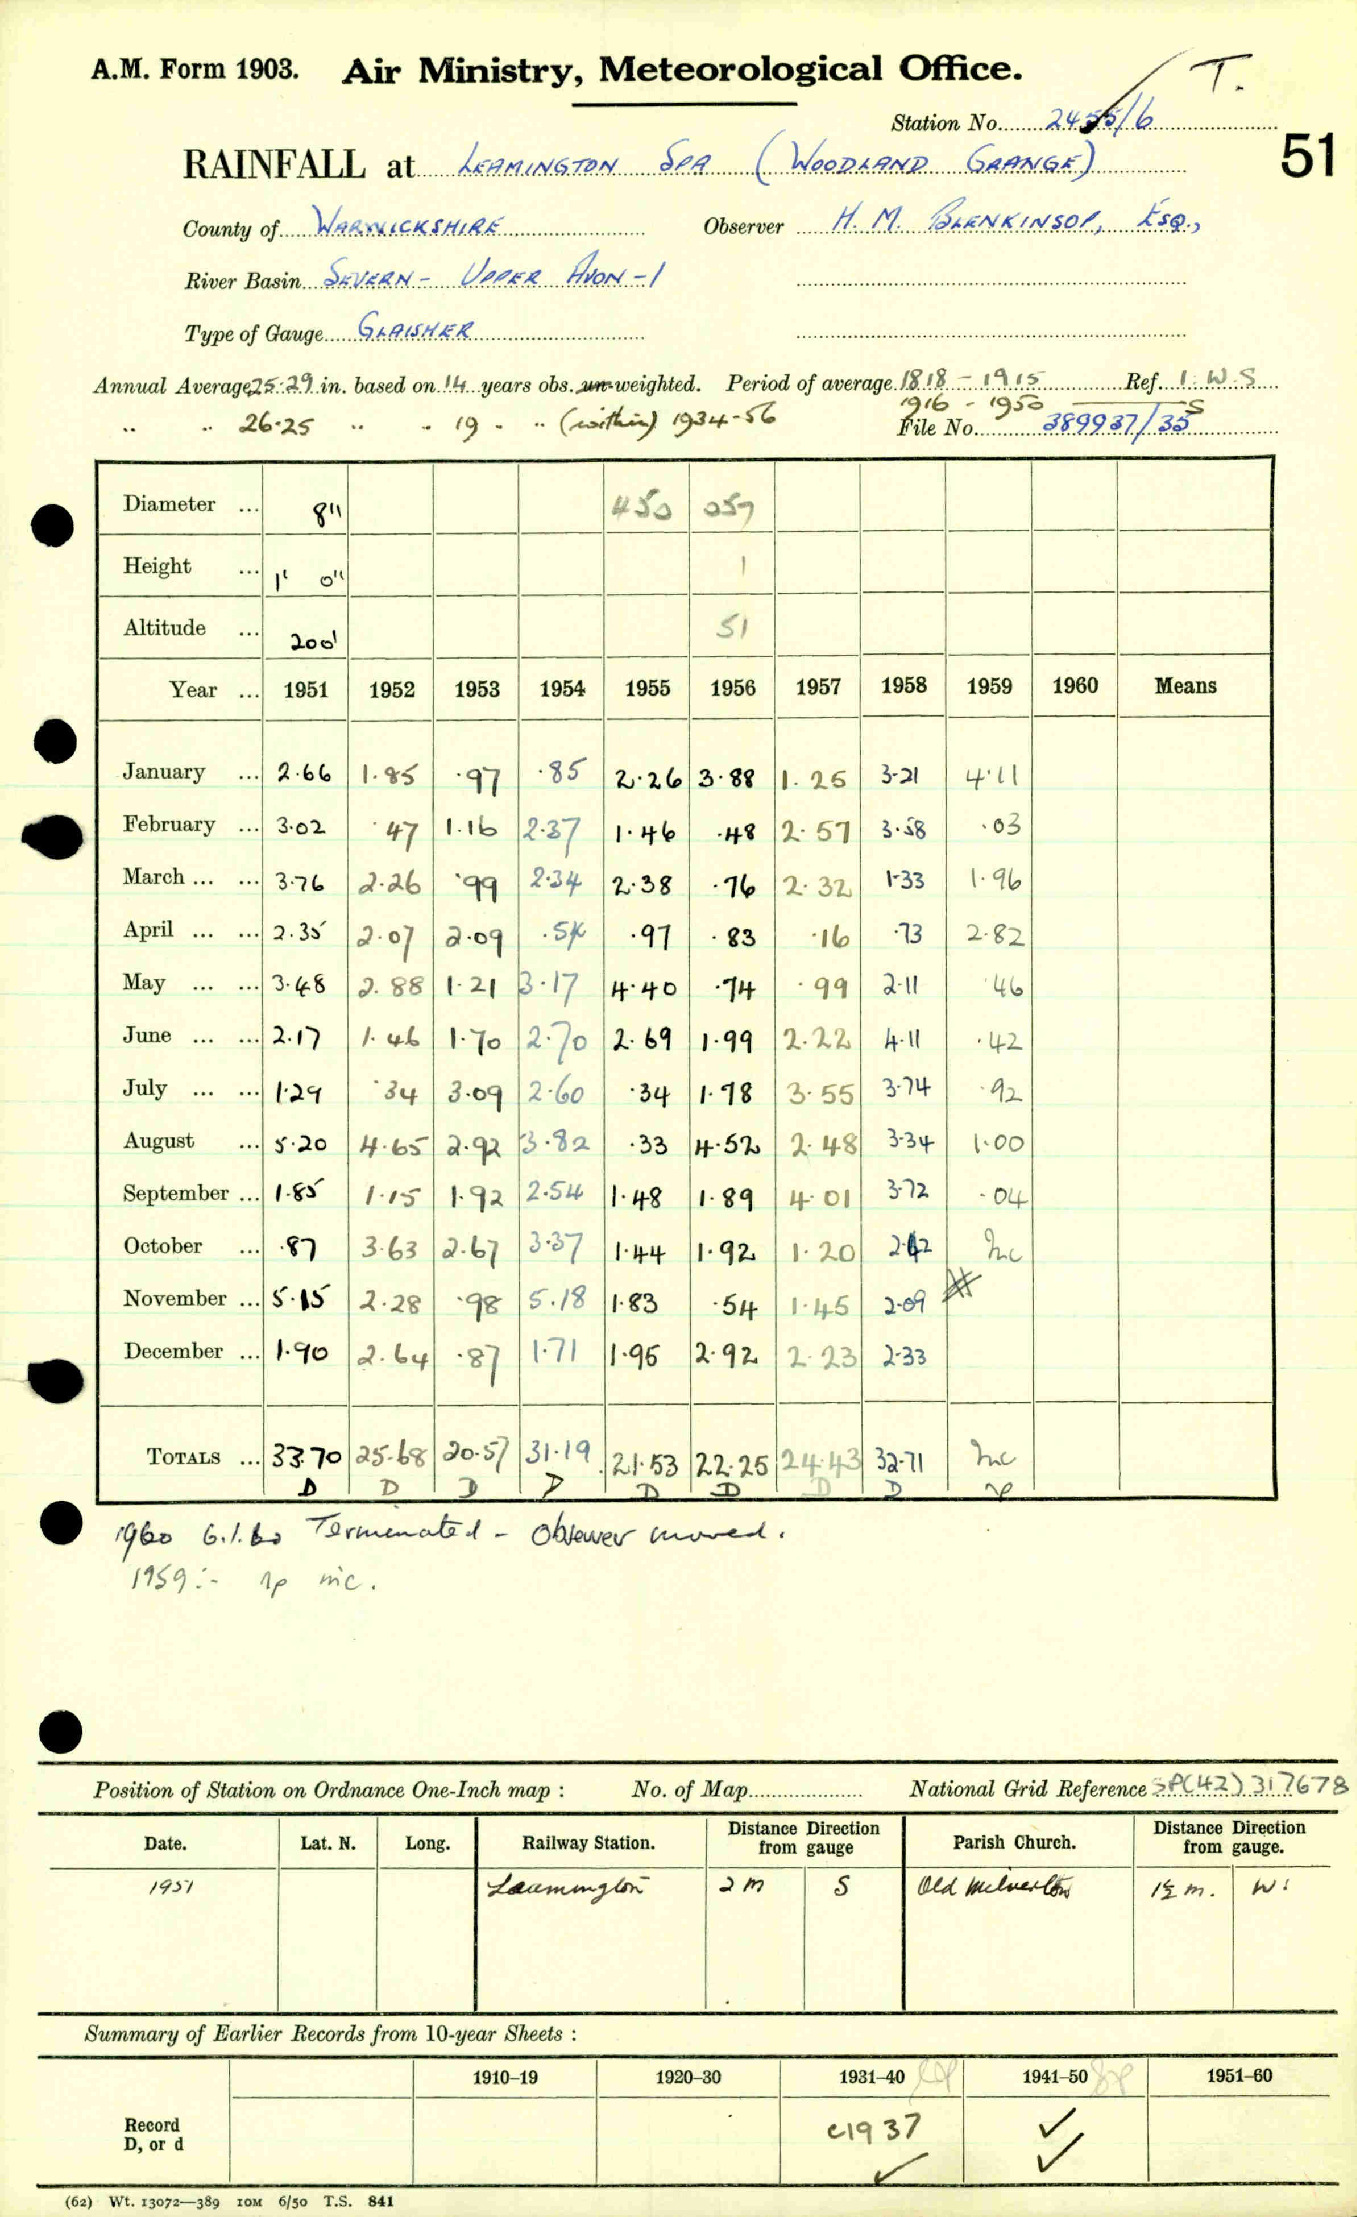 A.M. Form 1903. Air Ministry, Meteorological Office. T.
Station No. 2455/6
RAINFALL at LEAMINGTON SPA (WOODLAND GRANGE) 51
County of WARWICKSHIRE Observer H. M. BLENKINSOP, ESQ.,
River Basin SEVERN - UPPER AVON - 1
Type of Gauge GLAISHER
Annual Average 25.29 in. based on 14 years obs. un-weighted. Period of average 1818 - 1915 Ref. 1. W. S
1916 - 1950 S
.. .. 26.25 .. .. 19 .. .. (within) 1934-56 File No. 389937/35
Diameter ... 8" 450 057
Height ... 1' 0" 1
Altitude ... 200' 51
Year ... 1951 1952 1953 1954 1955 1956 1957 1958 1959 1960 Means
January ... 2.66 1.85 .97 .85 2.26 3.88 1.25 3.21 4.11
February ... 3.02 .47 1.16 2.37 1.46 .48 2.57 3.58 .03
March ... ... 3.76 2.26 .99 2.34 2.38 .76 2.32 1.33 1.96
April ... ... 2.35 2.07 2.09 .54 .97 .83 .16 .73 2.82
May ... ... 3.48 2.88 1.21 3.17 4.40 .74 .99 2.11 .46
June ... ... 2.17 1.46 1.70 2.70 2.69 1.99 2.22 4.11 .42
July ... ... 1.29 .34 3.09 2.60 .34 1.78 3.55 3.74 .92
August ... 5.20 4.65 2.92 3.82 .33 4.52 2.48 3.34 1.00
September ... 1.85 1.15 1.92 2.54 1.48 1.89 4.01 3.72 .04
October ... .87 3.63 2.67 3.37 1.44 1.92 1.20 2.42 Inc
November ... 5.15 2.28 .98 5.18 1.83 .54 1.45 2.09
December ... 1.90 2.64 .87 1.71 1.95 2.92 2.23 2.33
TOTALS ... 33.70 25.68 20.57 31.19 21.53 22.25 24.43 32.71 Inc
D D D D D D D D np
1960 6.1.60 Terminated - Observer moved.
1959:- np inc.
Position of Station on Ordnance One-Inch map : No. of Map National Grid Reference SP(42)317678
Date. Lat. N. Long. Railway Station. Distance from Direction gauge Parish Church. Distance from Direction gauge.
1951 Leamington 2 m S Old Milverton 1½ m. W.
Summary of Earlier Records from 10-year Sheets :
1910–19 1920–30 1931–40 1941–50 1951–60
Record D, or d c1937 ✓ ✓ ✓
(62) Wt. 13072—389 10M 6/50 T.S. 841